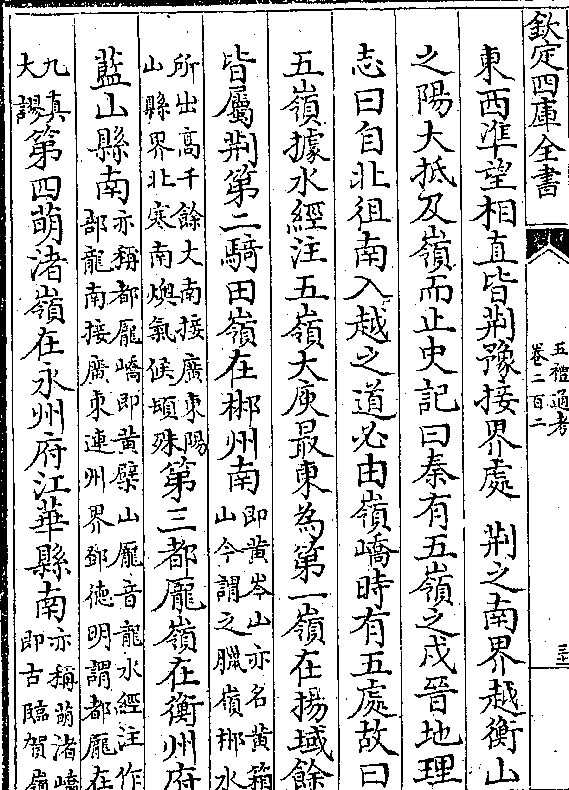 欽定四庫全書
五禮通考
卷二百二
東西準望相直皆荆豫接界處 荆之南界越衡山
之陽大抵及嶺而止史記曰秦有五嶺之戍晉地理
志曰自北徂南入越之道必由嶺嶠時有五處故曰
五嶺據水經注五嶺大庾最東為第一嶺在揚域餘
皆屬荆第二騎田嶺在郴州南即黄岑山亦名黄箱
山今謂之臘嶺郴水
所出高千餘丈南接廣東陽
山縣界北寒南燠氣候頓殊第三都龐嶺在衡州府
藍山縣南亦稱都龐嶠即黄檗山龐音龍水經注作
部龍南接廣東連州界鄧德明謂都龐在
九真
大謬第四萌渚嶺在永州府江華縣南亦稱萌渚嶠
即古臨賀嶺